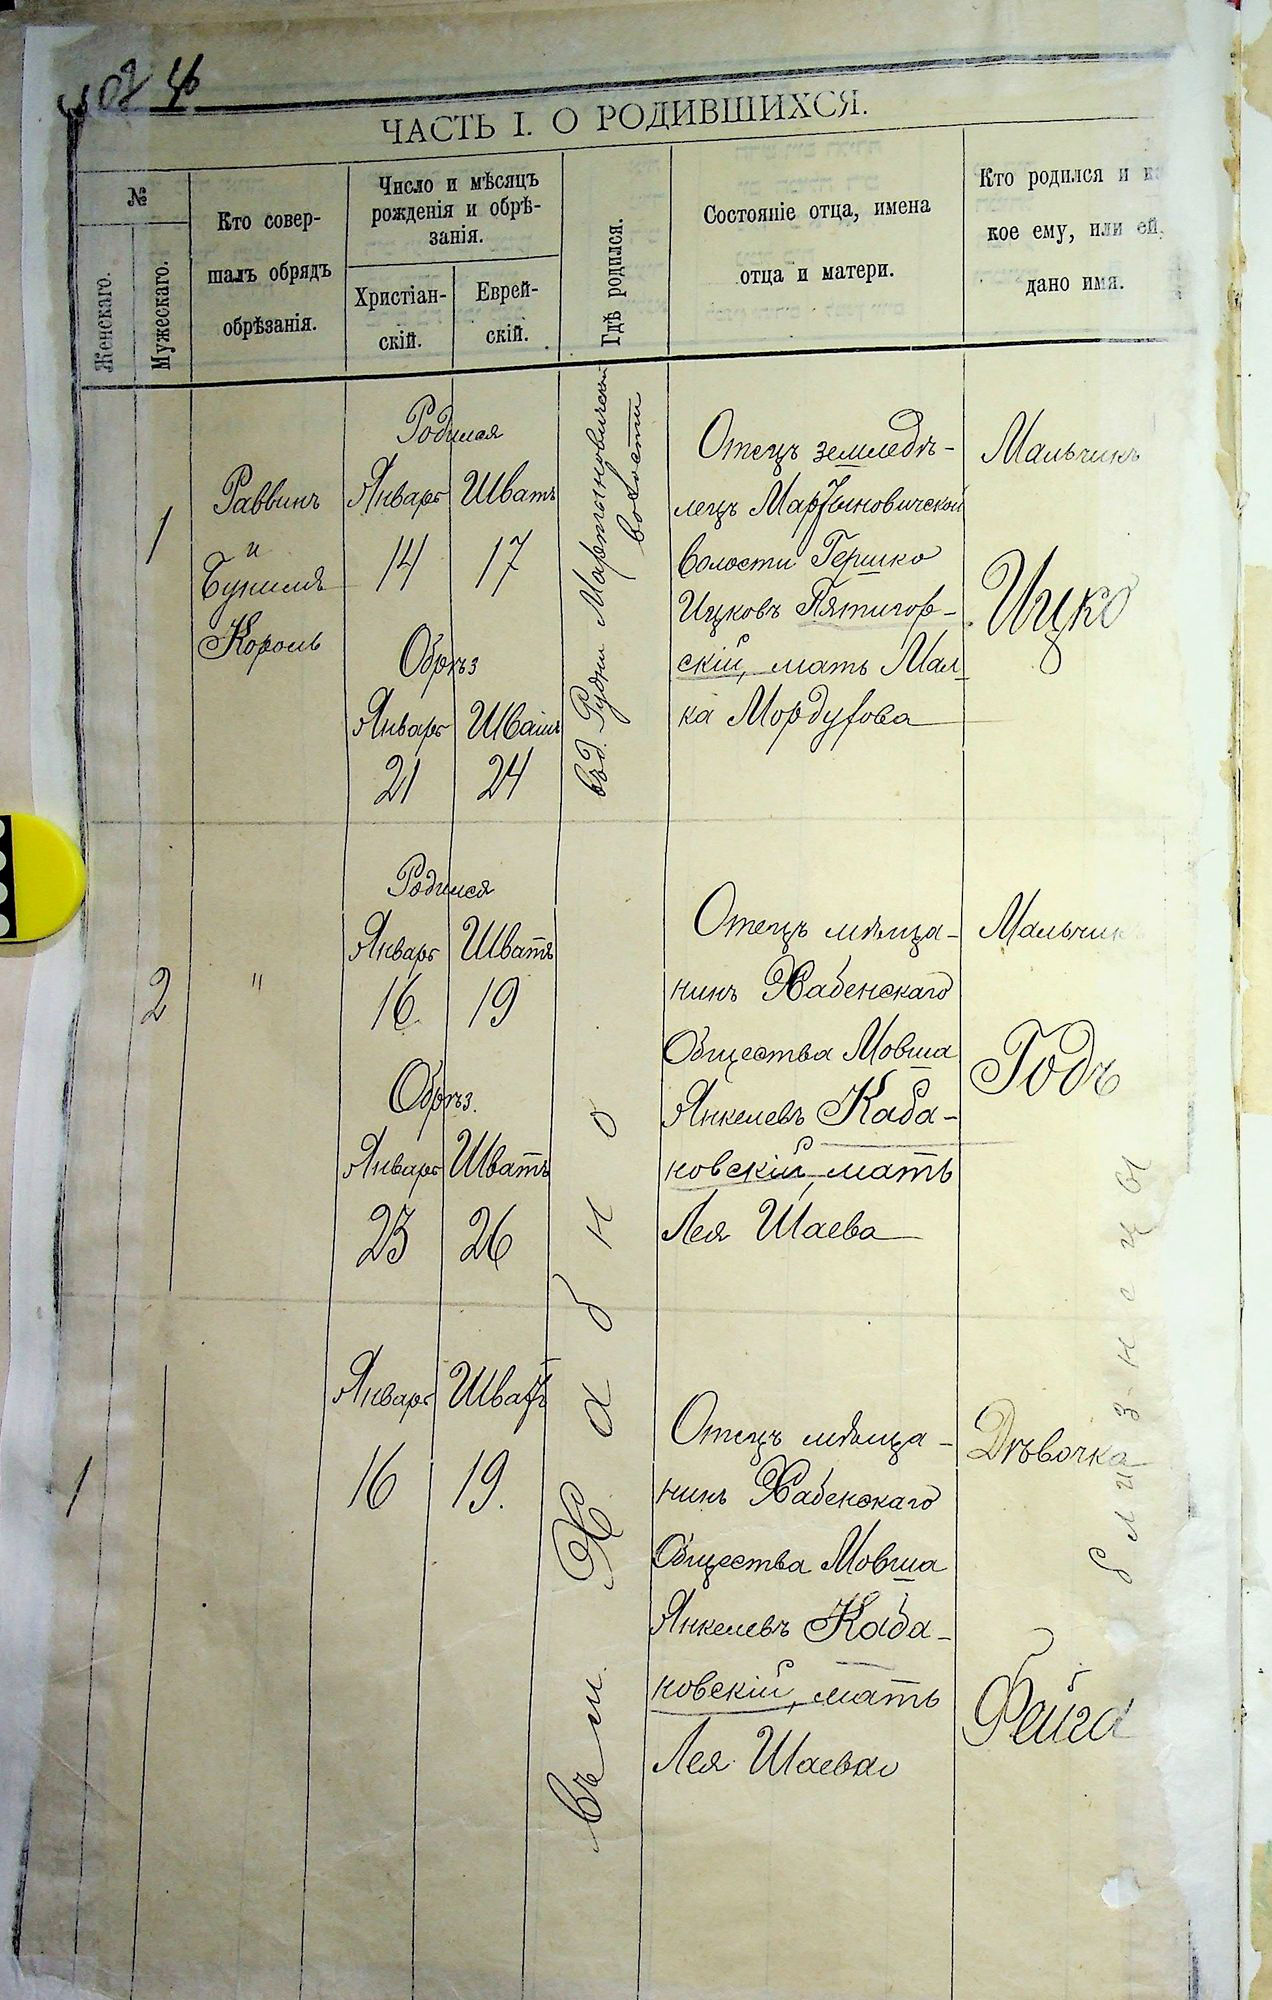 ЧАСТЬ I. О РОДИВШИХСЯ.
№
Женскаго.
Мужескаго.
Кто совер-
шалъ обрядъ
обрѣзанія.
Число и мѣсяцъ
рожденія и обрѣ-
занія.
Христіан-
скій.
Еврей-
скій.
Гдѣ родился.
Состояніе отца, имена
отца и матери.
Кто родился и ка
кое ему, или ей,
дано имя.
1
Раввинъ
и
Король
Родился
Январь Шватъ
14 17
Обрѣз
Январь Шватъ
21 24
въ д. Рудни Мартыновичской
волости
Отецъ земледѣ-
лецъ Мартыновичской
волости Гершко
Ицковъ Пятигор-
скій, мать Мал-
ка Мордухова
Мальчикъ
Ицко
2
"
Родился
Январь Шватъ
16 19
Обрѣз.
Январь Шватъ
23 26
Въ м. Хабно
Отецъ мѣща-
нинъ Хабенскаго
Общества Мовша
Янкелевъ Каба-
новскій, мать
Лея Шаева
Мальчикъ
Годъ
1
Январь Шватъ
16 19.
Отецъ мѣща-
нинъ Хабенскаго
Общества Мовша
Янкелевъ Каба-
новскій, мать
Лея Шаева
Дѣвочка
Фейга
близнецы